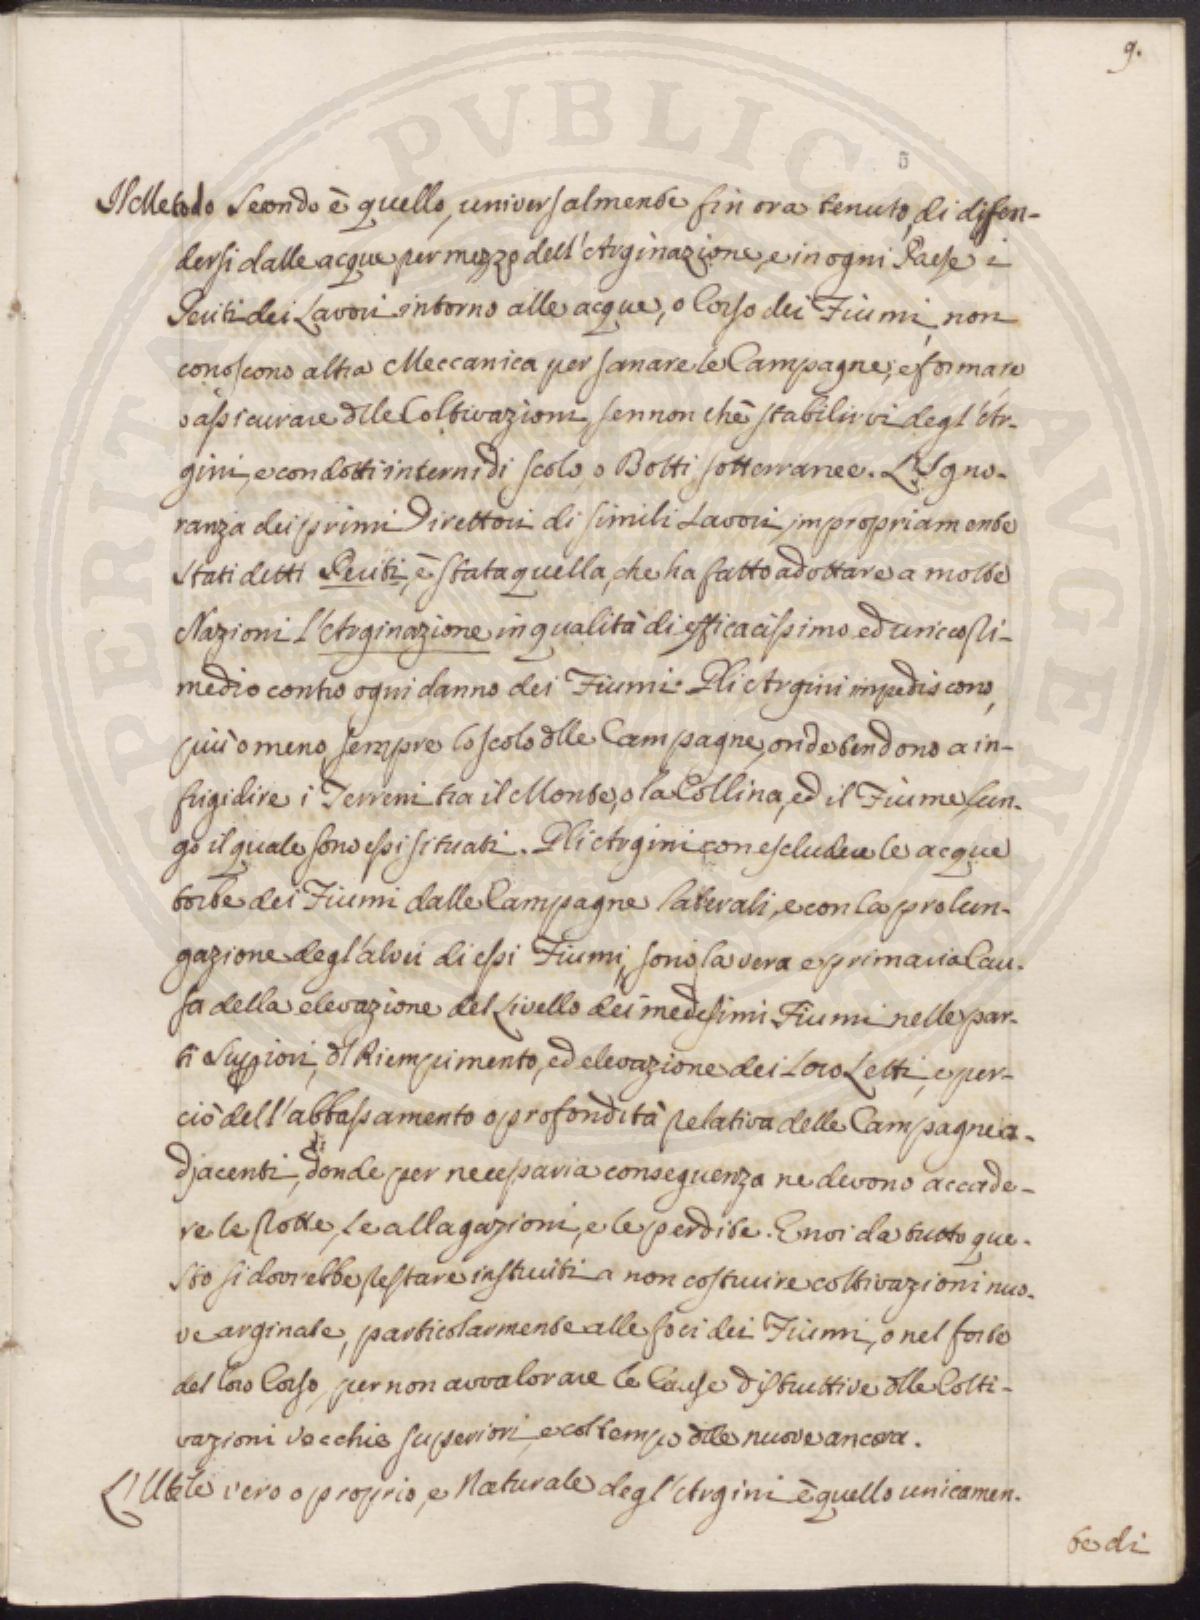 9.
5
Il Metodo Secondo è quello, universalmente fin ora tenuto, di difen-
dersi dalle acque per mezzo dell'Arginazione, e in ogni Paese i
Periti dei Lavori intorno alle acque, o Corso dei Fiumi, non
conoscono altra Meccanica per sanare le Campagne, e formare
o assicurare dlle Coltivazioni, sennon chè stabilirvi degl'Ar-
gini, e condotti interni di scolo, o Botti sotterranee. L'Igno-
ranza dei primi Direttori di simili Lavori, impropriamente
stati detti Periti, è stata quella, che ha fatto adottare a molte
Nazioni l'Arginazione in qualità di efficacissimo ed unico ri-
medio contro ogni danno dei Fiumi. Gli Argini impediscono,
più o meno, sempre lo scolo dlle Campagne, onde tendono a in-
frigidire i Terreni tra il Monte, o la Collina, ed il Fiume lun-
go il quale sono essi situati. Gli Argini con escludere le acque
torbe dei Fiumi dalle Campagne laterali, e con la prolun-
gazione degl'alvei di essi Fiumi, sono la vera e primaria Cau-
sa della elevazione del Livello dei medesimi Fiumi nelle par-
ti Suppiori, dl Riempimento, ed elevazione dei Loro Letti, e per-
ciò dell'abbassamento o profondità relativa delle Campagne a-
djacenti, di donde per necessaria conseguenza ne devono accade-
re le Rotte, le allagazioni, e le perdite. E noi da tutto que-
sto si dovrebbe restare instruiti a non costruire coltivazioni nuo-
ve arginate, particolarmente alle foci dei Fiumi, o nel forte
del loro Corso, per non avvalorare le Cause distruttive dlle Colti-
vazioni vecchie superiori, e col tempo dlle nuove ancora.
L'Utile vero o proprio, e Naturale degl'Argini è quello unicamen-
te di
PERITA PVBLICA AVGENTE